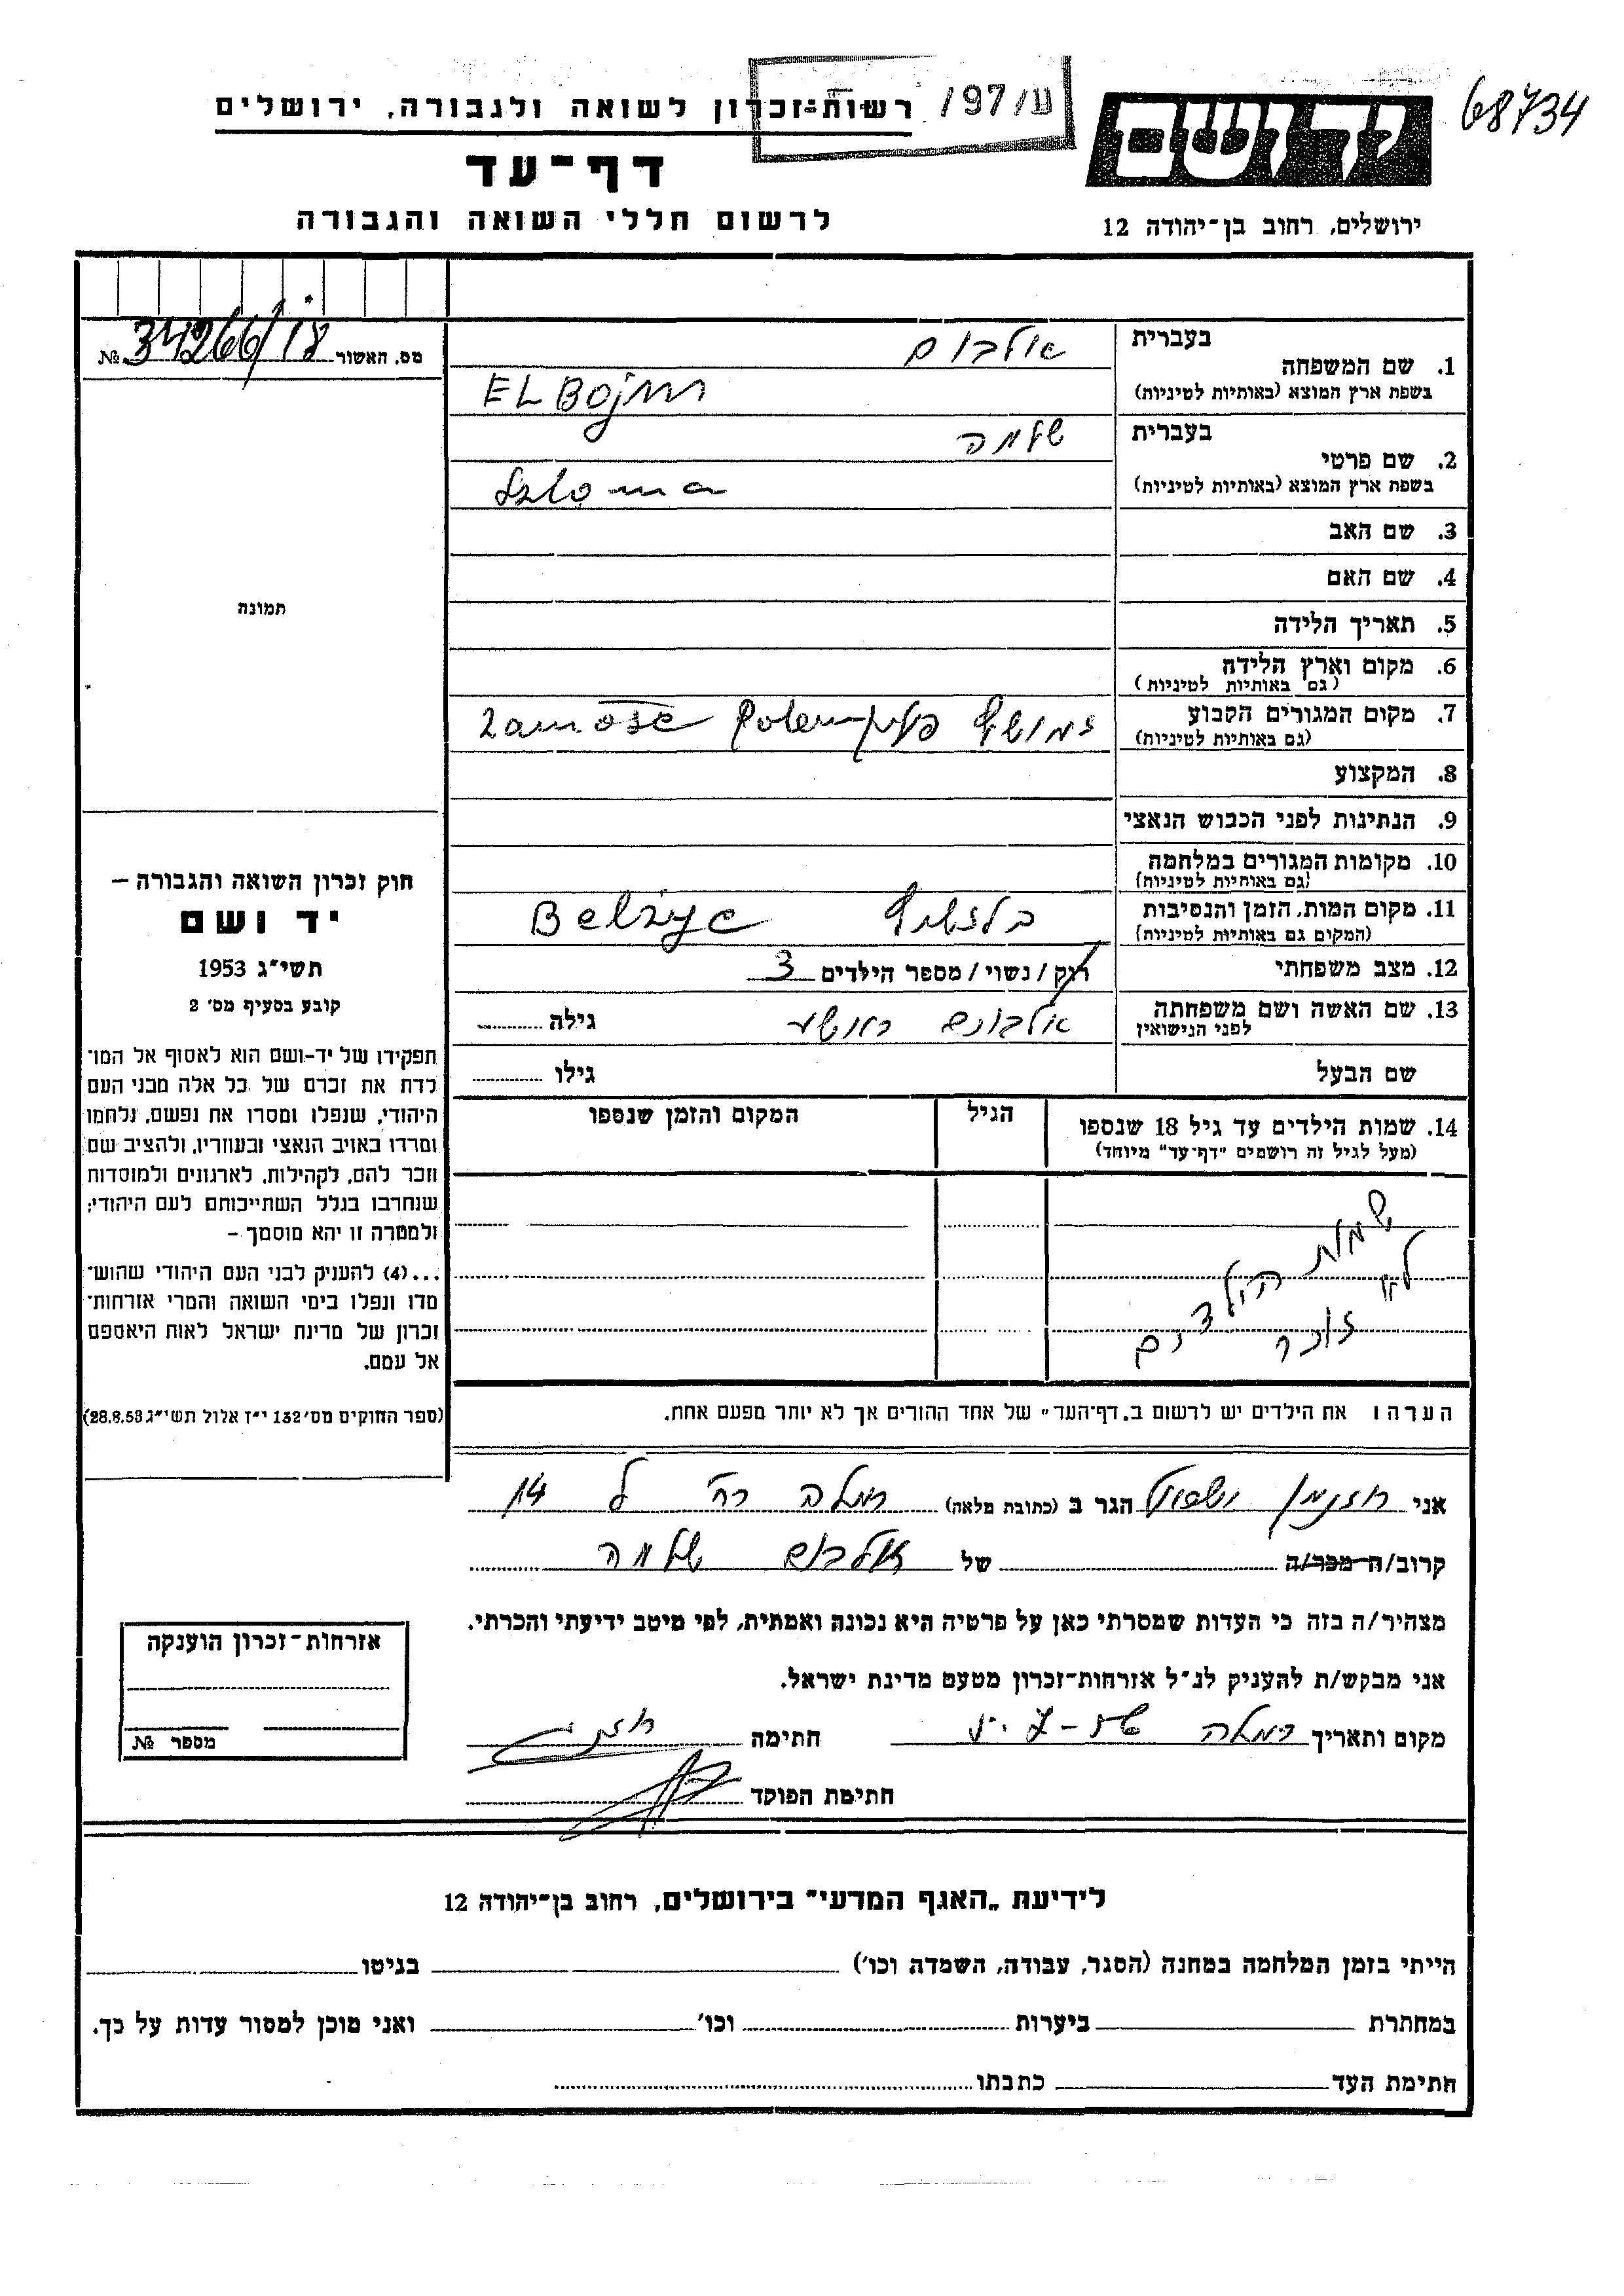 68734
יד ושם
ע/97/
רשות-זכרון לשואה ולגבורה, ירושלים
דף-עד
לרשום חללי השואה והגבורה
ירושלים, רחוב בן-יהודה 12
מס. האשור № 34266/18
1. שם המשפחה
בעברית אלבוים
בשפת ארץ המוצא (באותיות לטיניות) ELBojm
2. שם פרטי
בעברית שלמה
בשפת ארץ המוצא (באותיות לטיניות) Szloma
3. שם האב
4. שם האם
5. תאריך הלידה
6. מקום וארץ הלידה
(גם באותיות לטיניות)
7. מקום המגורים הקבוע
(גם באותיות לטיניות) Zamość
8. המקצוע
9. הנתינות לפני הכבוש הנאצי
10. מקומות המגורים במלחמה
(גם באותיות לטיניות)
11. מקום המות, הזמן והנסיבות
(המקום גם באותיות לטיניות) Belżyc
12. מצב משפחתי רווק/נשוי/מספר הילדים 3
13. שם האשה ושם משפחתה
לפני הנישואין אלבוים גילה
שם הבעל גילו
14. שמות הילדים עד גיל 18 שנספו
(מעל לגיל זה רושמים "דף-עד" מיוחד)
הגיל
המקום והזמן שנספו
שמות הילדים
לא זוכר
הערה: את הילדים יש לרשום ב„דף-העד" של אחד ההורים אך לא יותר מפעם אחת.
תמונה
חוק זכרון השואה והגבורה –
יד ושם
תשי"ג 1953
קובע בסעיף מס' 2
תפקידו של יד-ושם הוא לאסוף אל המו־
לדת את זכרם של כל אלה מבני העם
היהודי, שנפלו ומסרו את נפשם, נלחמו
ומרדו באויב הנאצי ובעוזריו, ולהציב שם
וזכר להם, לקהילות, לארגונים ולמוסדות
שנחרבו בגלל השתייכותם לעם היהודי;
ולמטרה זו יהא מוסמך –
...(4) להעניק לבני העם היהודי שהוש־
מדו ונפלו בימי השואה והמרי אזרחות־
זכרון של מדינת ישראל לאות היאספם
אל עמם.
(ספר החוקים מס' 132 י"ז אלול תשי"ג 28.8.53)
אני הגר ב (כתובת מלאה) רמלה 14
קרוב/ה מכר/ה של אלבוים שלמה
מצהיר/ה בזה כי העדות שמסרתי כאן על פרטיה היא נכונה ואמתית, לפי מיטב ידיעתי והכרתי.
אני מבקש/ת להעניק לנ"ל אזרחות-זכרון מטעם מדינת ישראל.
מקום ותאריך רמלה חתימה
חתימת הפוקד
אזרחות-זכרון הוענקה
מספר №
לידיעת „האגף המדעי" בירושלים, רחוב בן-יהודה 12
הייתי בזמן המלחמה במחנה (הסגר, עבודה, השמדה וכו') בגיטו
במחתרת ביערות וכו' ואני מוכן למסור עדות על כך.
חתימת העד כתבתו